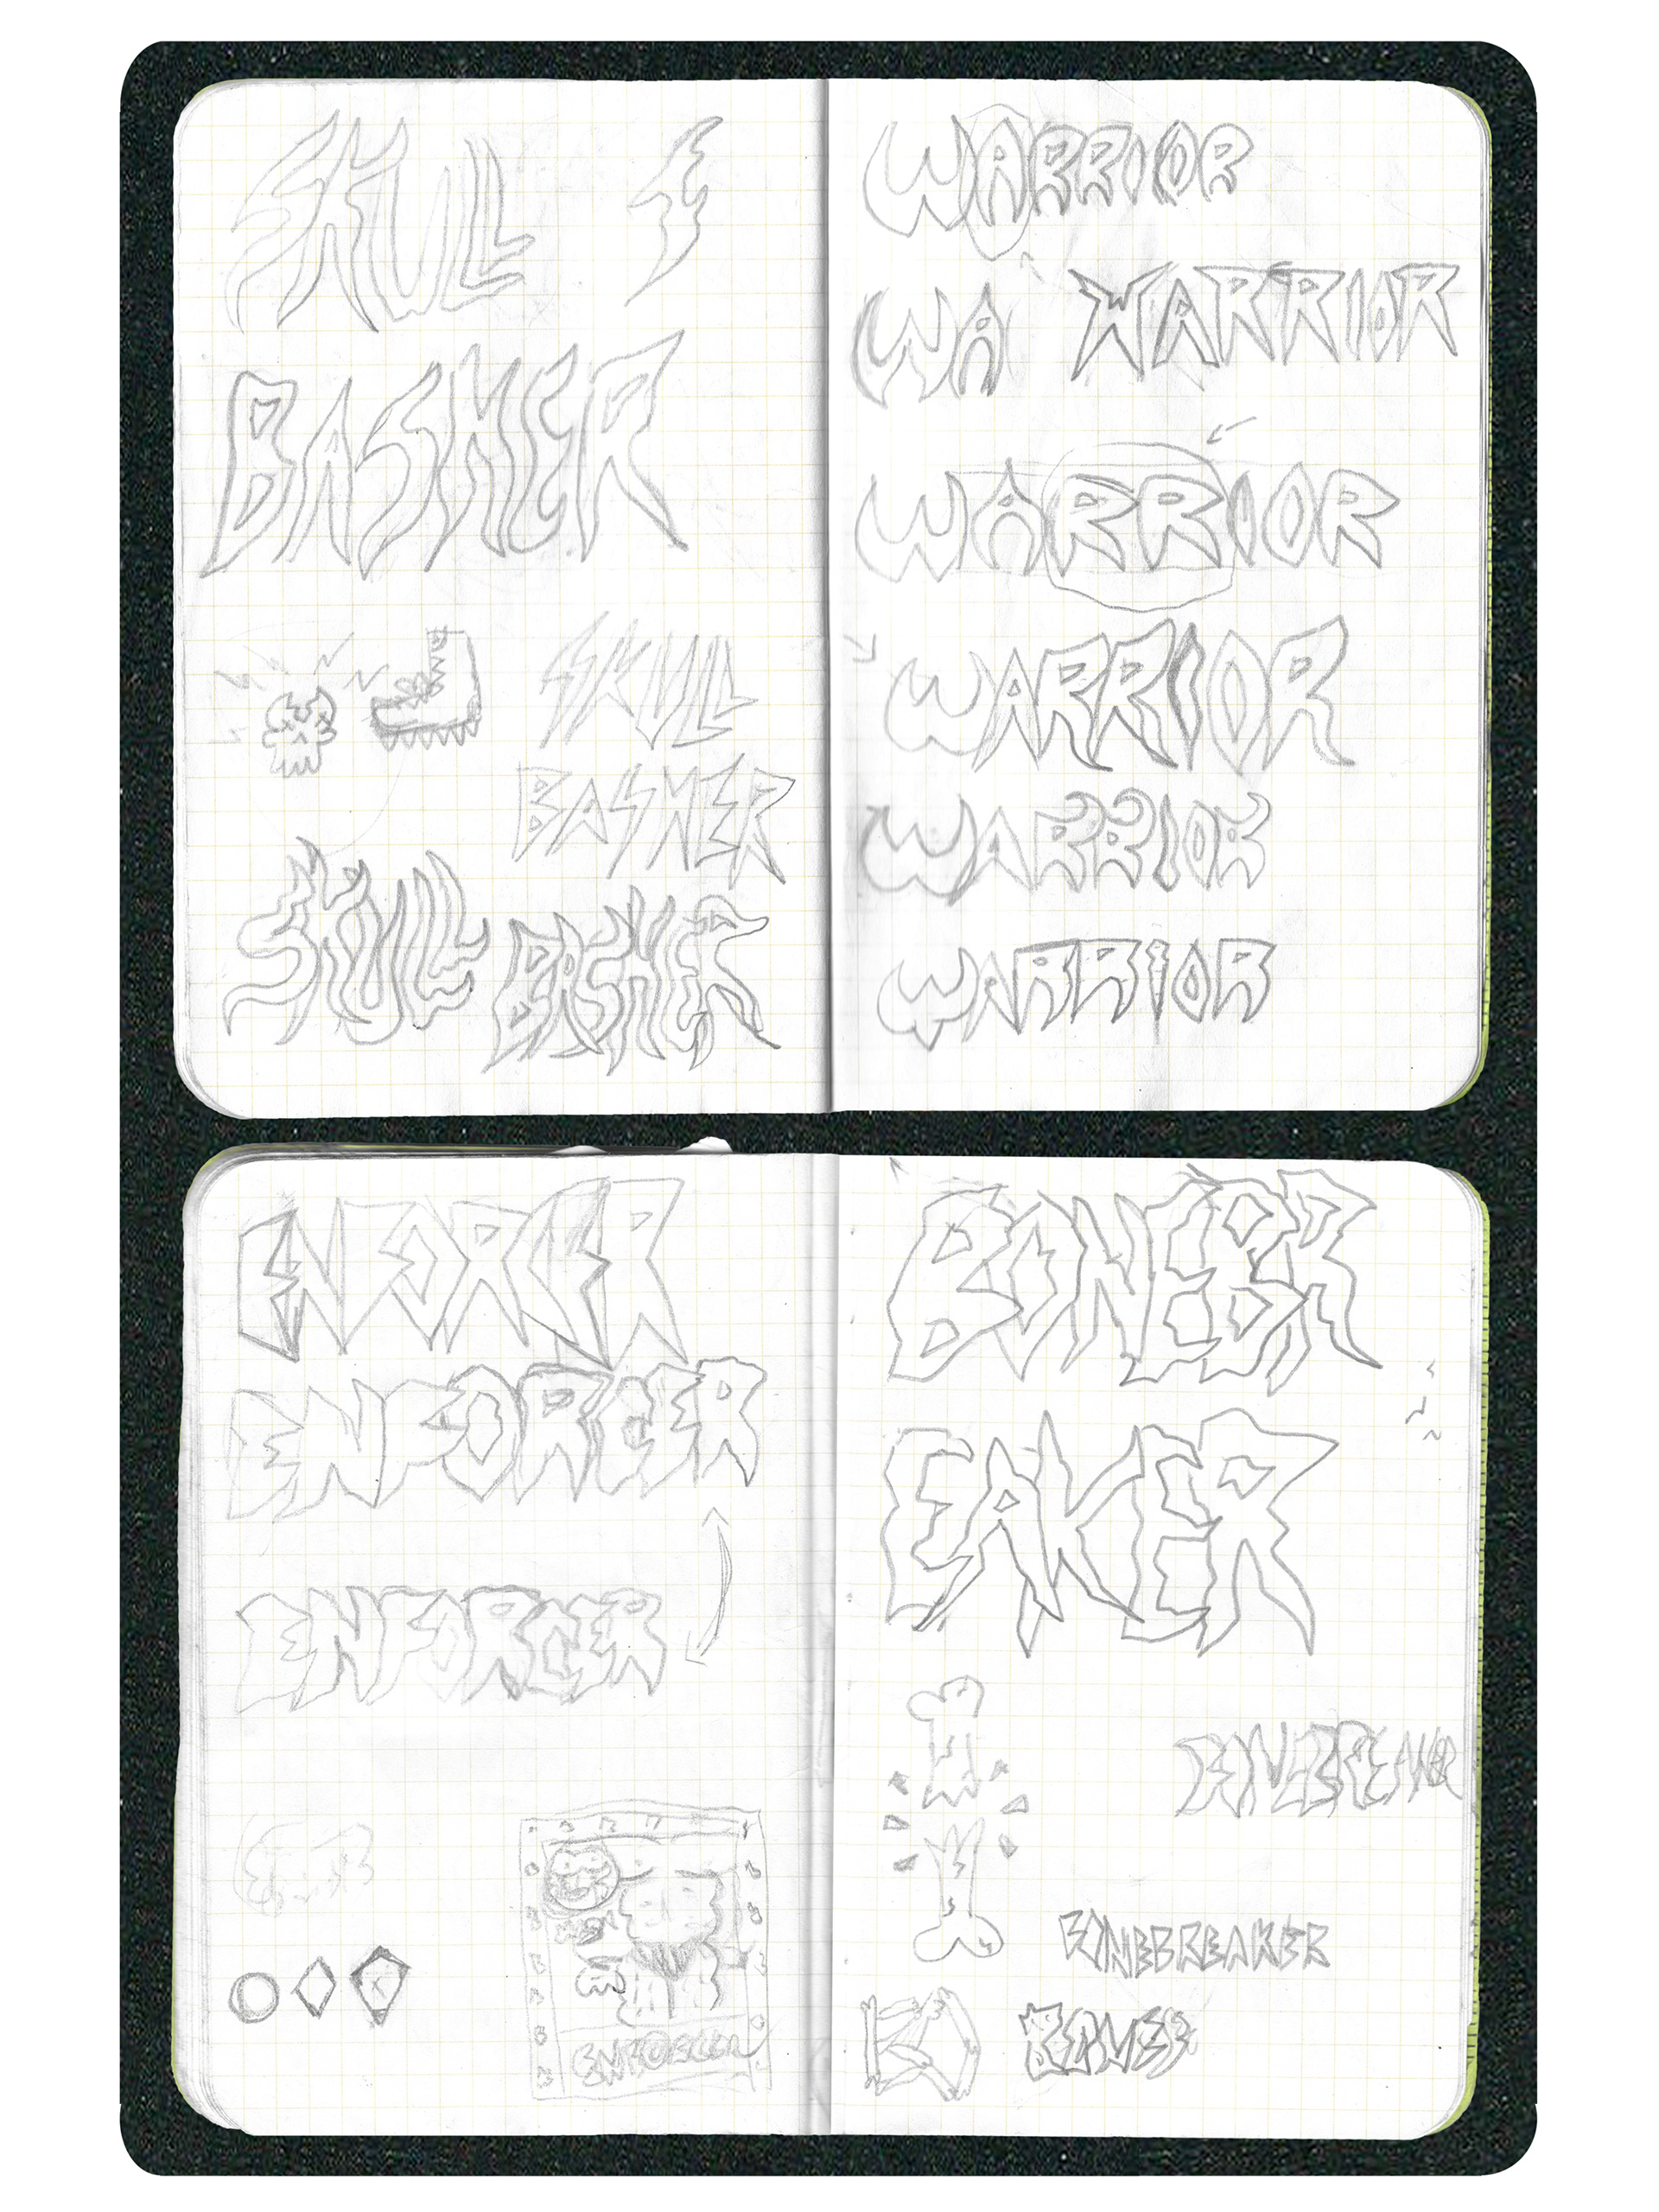 SKULL
BASHER
SKULL
BASHER
SKULL BASHER
WARRIOR
WA WARRIOR
WARRIOR
WARRIOR
WARRIOR
WARRIOR
ENFORCER
ENFORCER
ENFORCER
ENFORCER
BONEBR
EAKER
BONEBREAKER
BONEBREAKER
BONES